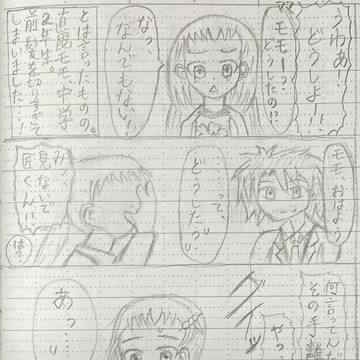 うわぁ!
どうしよ!!
ママ
モモーっ?
どうしたの!?
なっ
なんでもない!
とは言ったものの。
直毘モモ中学
2年生。
前髪を切りすぎて
しまいました…!
モモ、おはよう
……って、
どうした?
みっ
見ないで
匠くん!!
は?
何言ってんだ
その手離
やっ
グイッ
あっ…